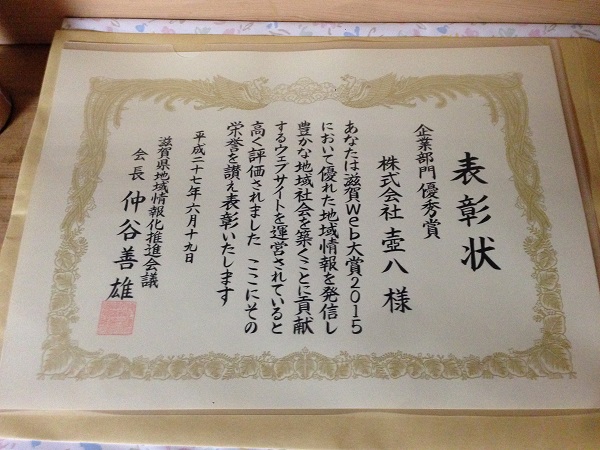 表彰状
企業部門 優秀賞
株式会社 壺八 様
あなたは滋賀Web大賞2015
において優れた地域情報を発信し
豊かな地域社会を築くことに貢献
するウェブサイトを運営されていると
高く評価されました ここにその
栄誉を讃え表彰いたします
平成二十七年六月十九日
滋賀県地域情報化推進会議
会長 仲谷善雄